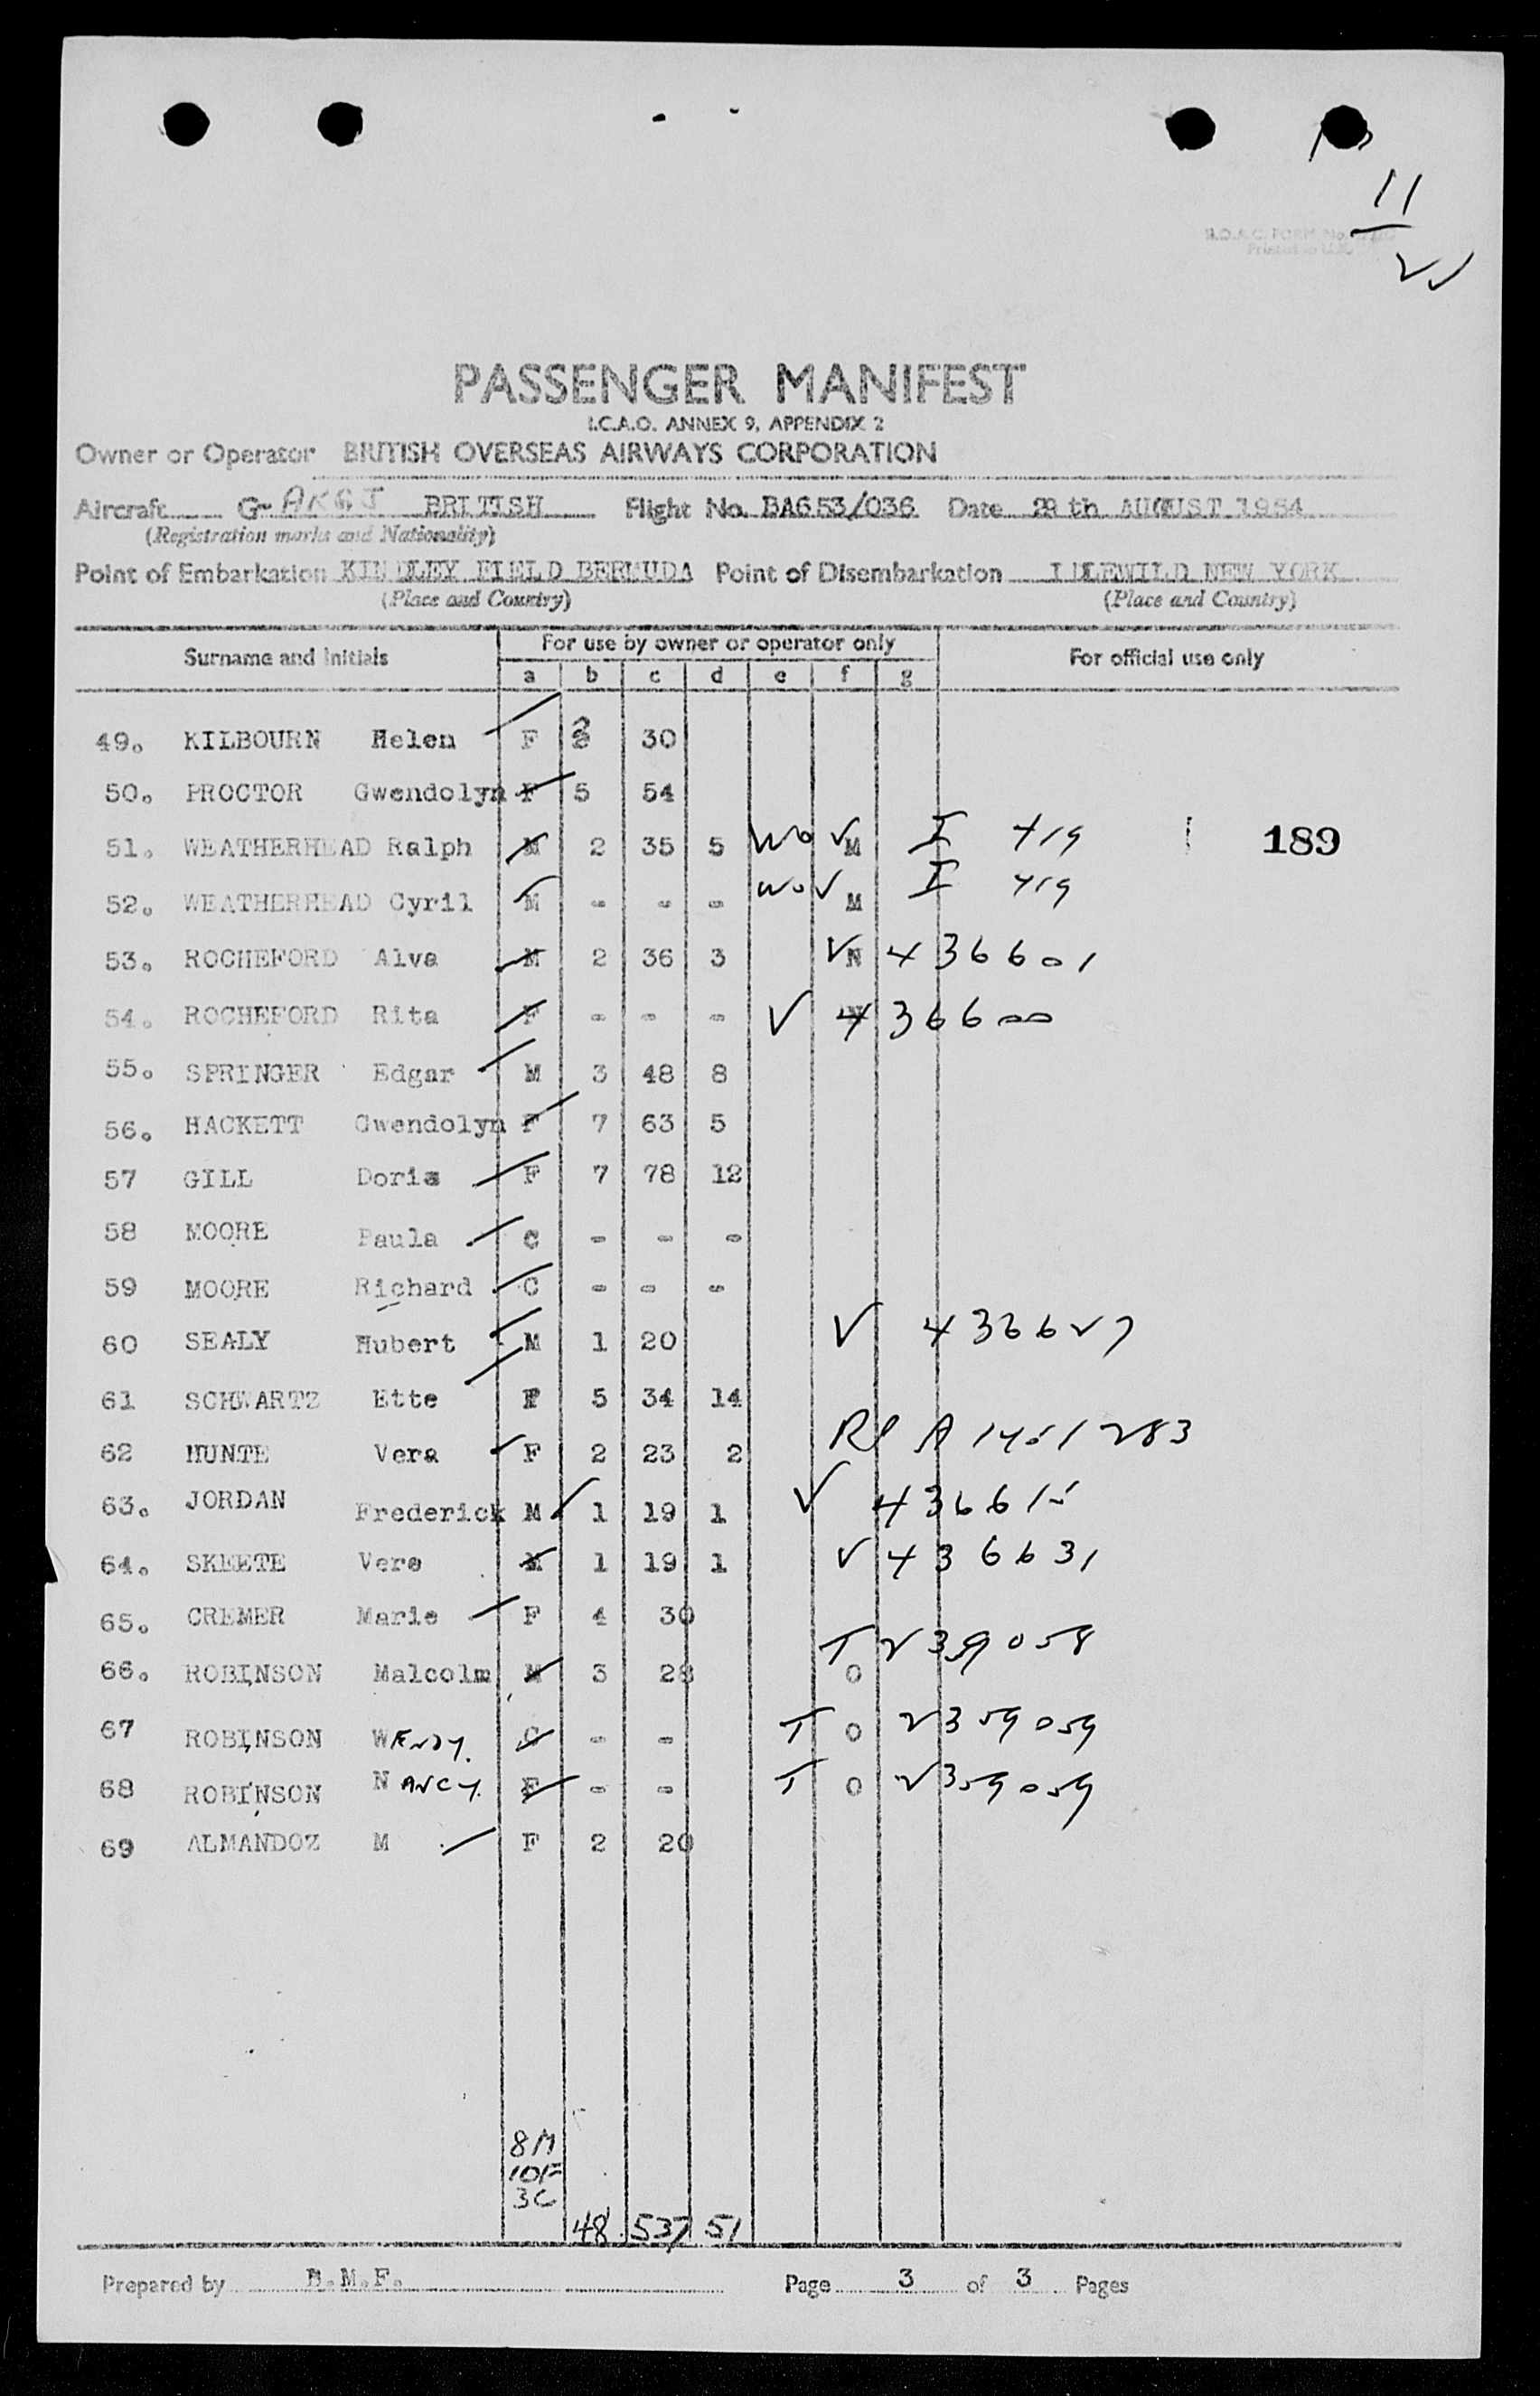 11
PASSENGER MANIFEST
I.C.A.O. ANNEX 9, APPENDIX 2
Owner or Operator BRITISH OVERSEAS AIRWAYS CORPORATION
Aircraft G- BRITISH Flight No. BA653/036 Date 29th AUGUST 1954
(Registration marks and Nationality)
Point of Embarkation KINDLEY FIELD BERMUDA Point of Disembarkation IDLEWILD NEW YORK
(Place and Country) (Place and Country)
Surname and Initials For use by owner or operator only For official use only
a b c d e f g
49. KILBOURN Helen F 2 30
50. PROCTOR Gwendolyn F 5 54
51. WEATHERHEAD Ralph M 2 35 5 Wo ✓ M I 419 189
52. WEATHERHEAD Cyril M - - - Wo ✓ M I 419
53. ROCHEFORD Alva M 2 36 3 V N 436601
54. ROCHEFORD Rita F - - - V 436600
55. SPRINGER Edgar M 3 48 8
56. HACKETT Gwendolyn F 7 63 5
57 GILL Doris F 7 78 12
58 MOORE Paula C - - -
59 MOORE Richard C - - -
60 SEALY Hubert M 1 20 V 436627
61 SCHWARTZ Ette F 5 34 14
62 HUNTE Vera F 2 23 2 RP A 1451283
63. JORDAN Frederick M 1 19 1 V 436615
64. SKEETE Vere M 1 19 1 V 436631
65. CREMER Marie F 4 30
66. ROBINSON Malcolm M 3 28 T O 2359058
67 ROBINSON WENDY. C - - T O 2359059
68 ROBINSON NANCY. F - - T O 2359059
69 ALMANDOZ M F 2 20
8M
10F
3C
48 537 51
Prepared by B.M.F. Page 3 of 3 Pages